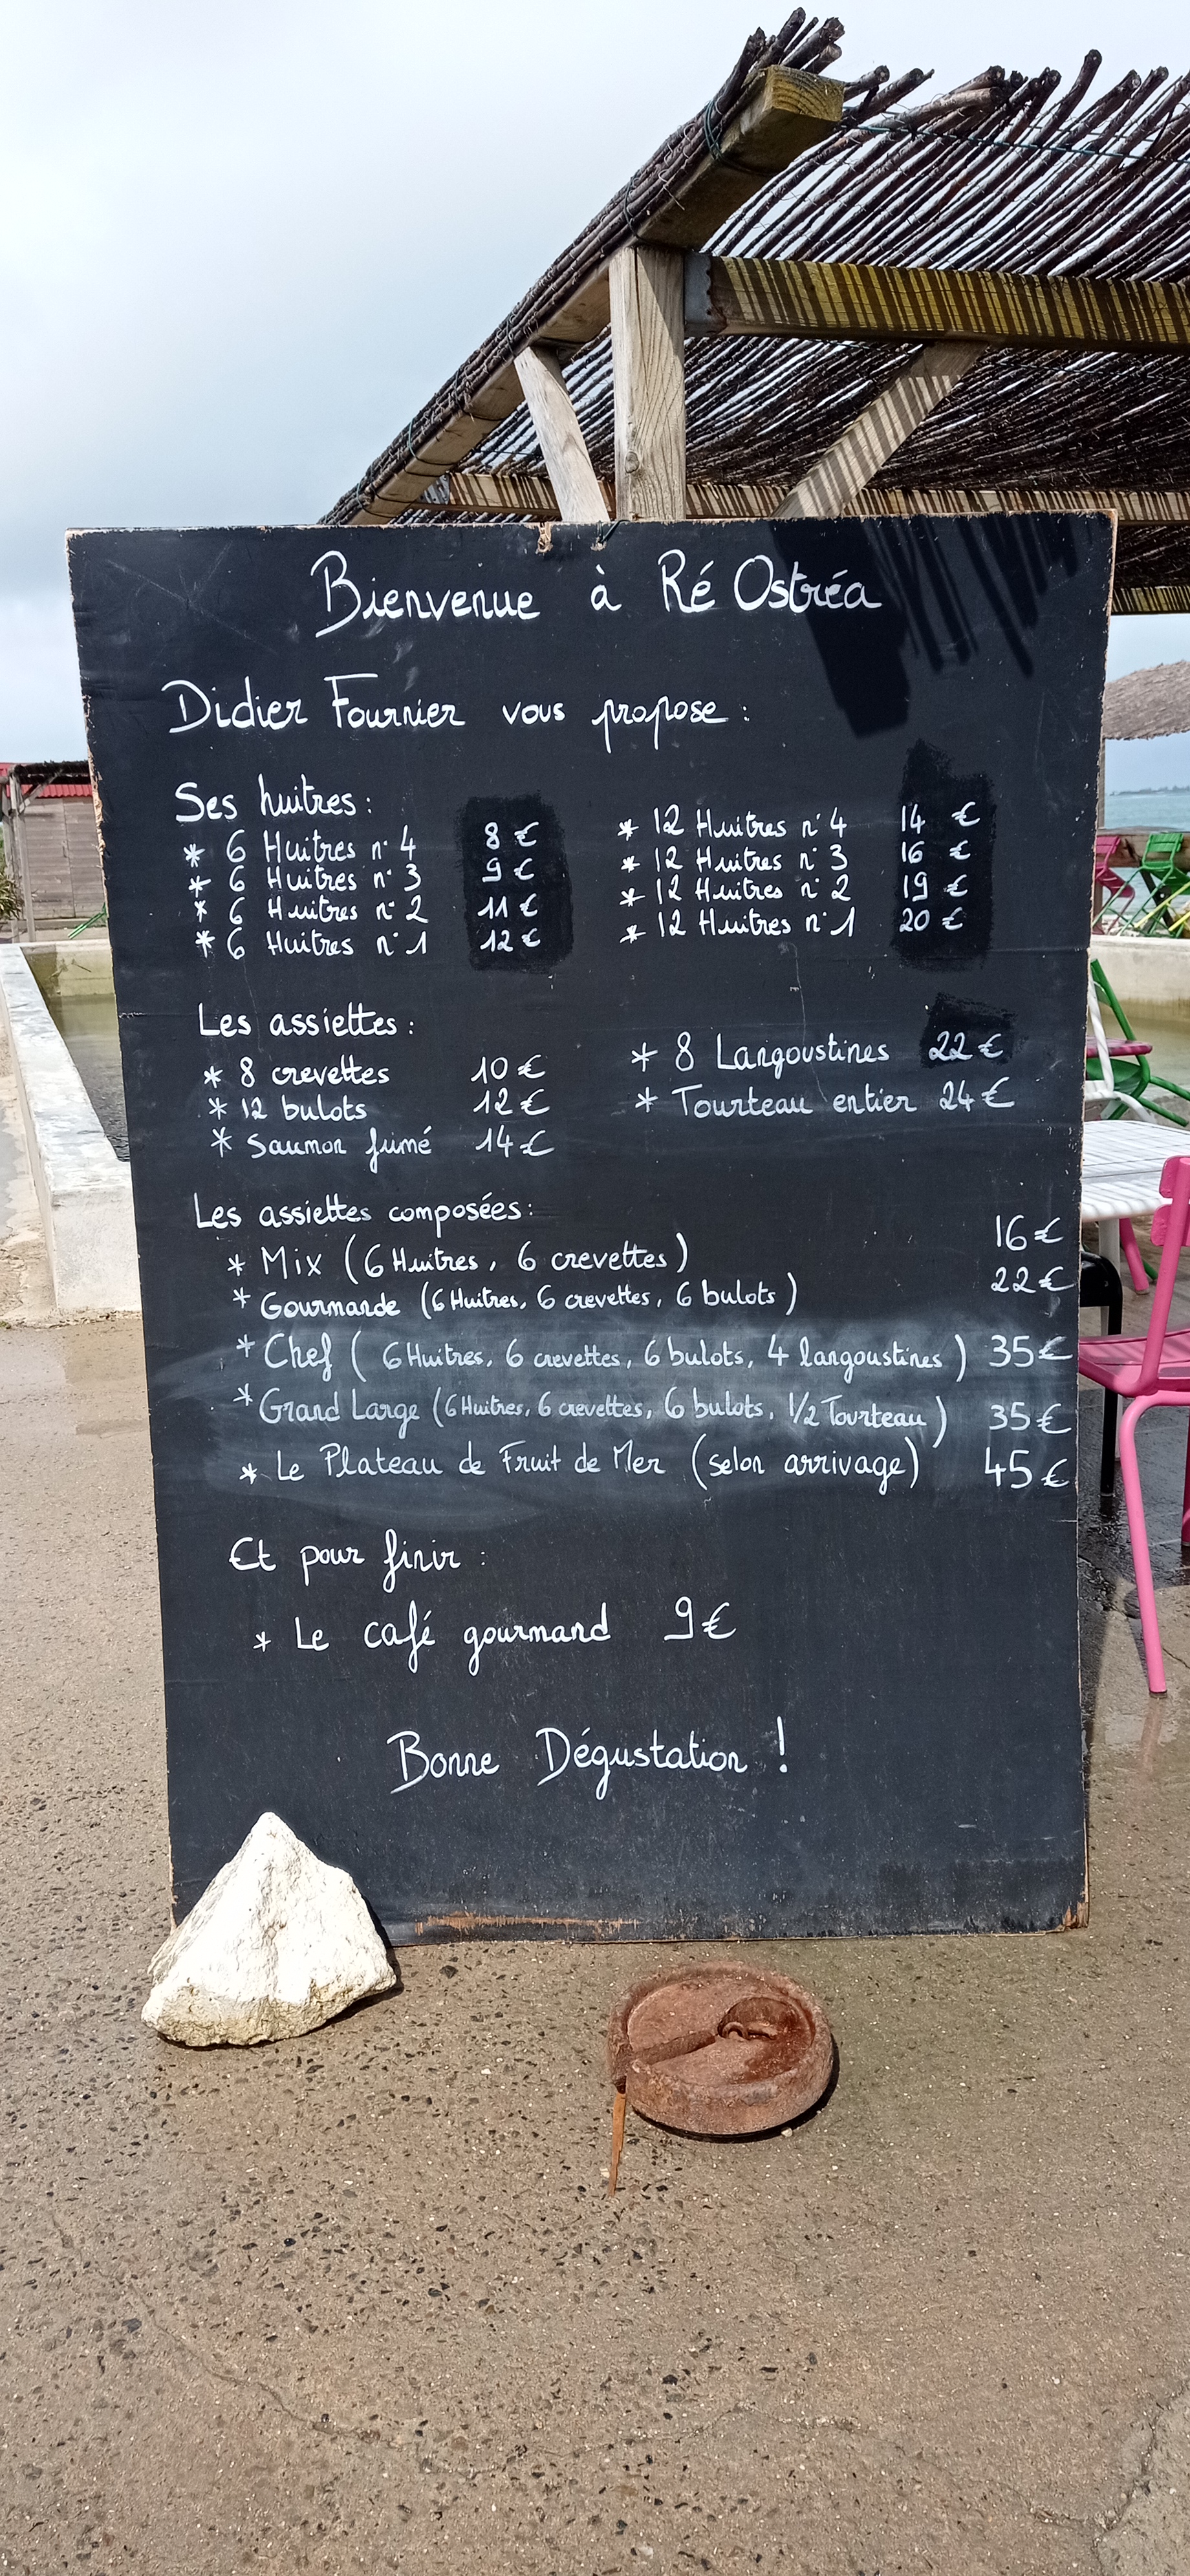 Bienvenue à Ré Ostréa
Didier Fournier vous propose :
Ses huitres :
* 6 Huitres n° 4 8 €
* 6 Huitres n° 3 9 €
* 6 Huitres n° 2 11 €
* 6 Huitres n° 1 12 €
* 12 Huitres n° 4 14 €
* 12 Huitres n° 3 16 €
* 12 Huitres n° 2 19 €
* 12 Huitres n° 1 20 €
Les assiettes :
* 8 crevettes 10 €
* 12 bulots 12 €
* Saumon fumé 14 €
* 8 Langoustines 22 €
* Tourteau entier 24 €
Les assiettes composées :
* Mix (6 Huitres, 6 crevettes) 16 €
* Gourmande (6 Huitres, 6 crevettes, 6 bulots) 22 €
* Chef (6 Huitres, 6 crevettes, 6 bulots, 4 langoustines) 35 €
* Grand Large (6 Huitres, 6 crevettes, 6 bulots, 1/2 Tourteau) 35 €
* Le Plateau de Fruit de Mer (selon arrivage) 45 €
Et pour finir :
* Le café gourmand 9 €
Bonne Dégustation !